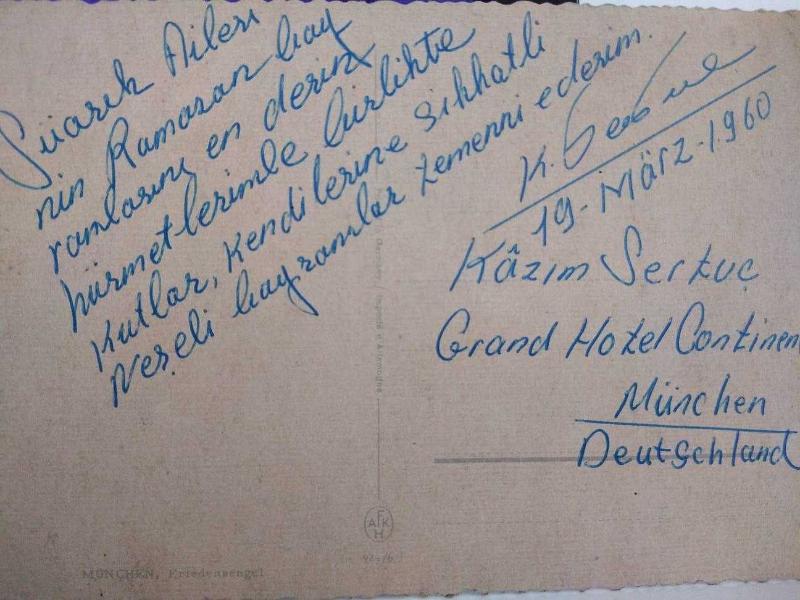 Süarek Ailesi
nin Ramazan bay
ramlarını en derin
hürmetlerimle birlikte
Kutlar, Kendilerine Sıhhatli
Neşeli bayramlar temenni ederim.
19-März-1960
Kâzım Sertuç
Grand Hotel Continen
München
Deutschland
AFKH
MÜNCHEN, Friedensengel